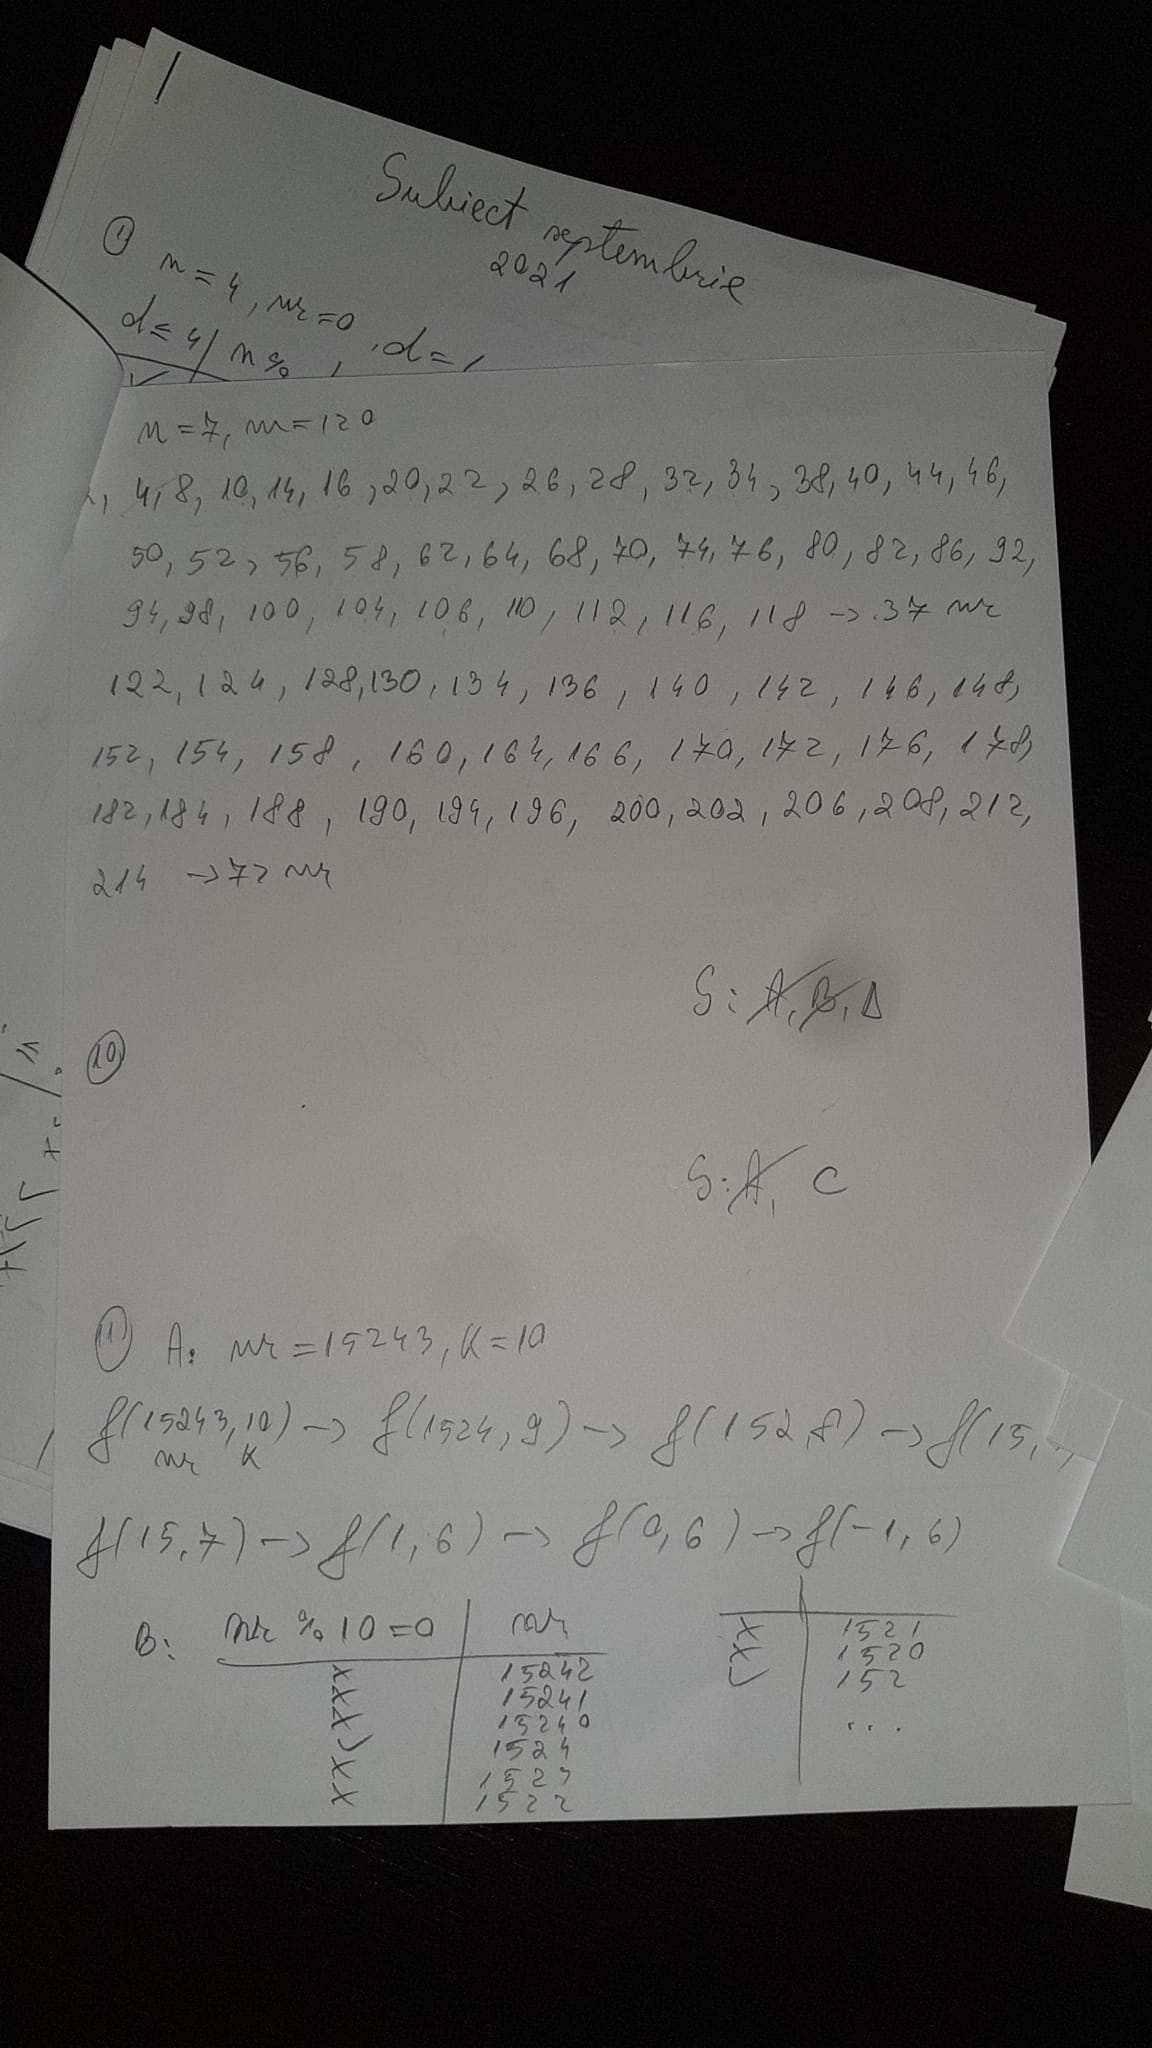 Subiect septembrie
2021
① n=4, nr=0, d=1
d≤4 / n%
n=7, m=120
4, 8, 10, 14, 16, 20, 22, 26, 28, 32, 34, 38, 40, 44, 46,
50, 52, 56, 58, 62, 64, 68, 70, 74, 76, 80, 82, 86, 92,
94, 98, 100, 104, 106, 110, 112, 116, 118 → 37 nr
122, 124, 128, 130, 134, 136, 140, 142, 146, 148,
152, 154, 158, 160, 164, 166, 170, 172, 176, 178,
182, 184, 188, 190, 194, 196, 200, 202, 206, 208, 212,
214 → 72 nr
S: A, B, D
⑩
S: A, C
⑪ A: nr=15243, K=10
f(15243,10) → f(1524,9) → f(152,8) → f(15,
nr K
f(15,7) → f(1,6) → f(0,6) → f(-1,6)
B: nr % 10=0 | nr
x 15242
x 15241
x 15240
✓ 1524
x 1523
x 1522
x 1521
x 1520
✓ 152
...